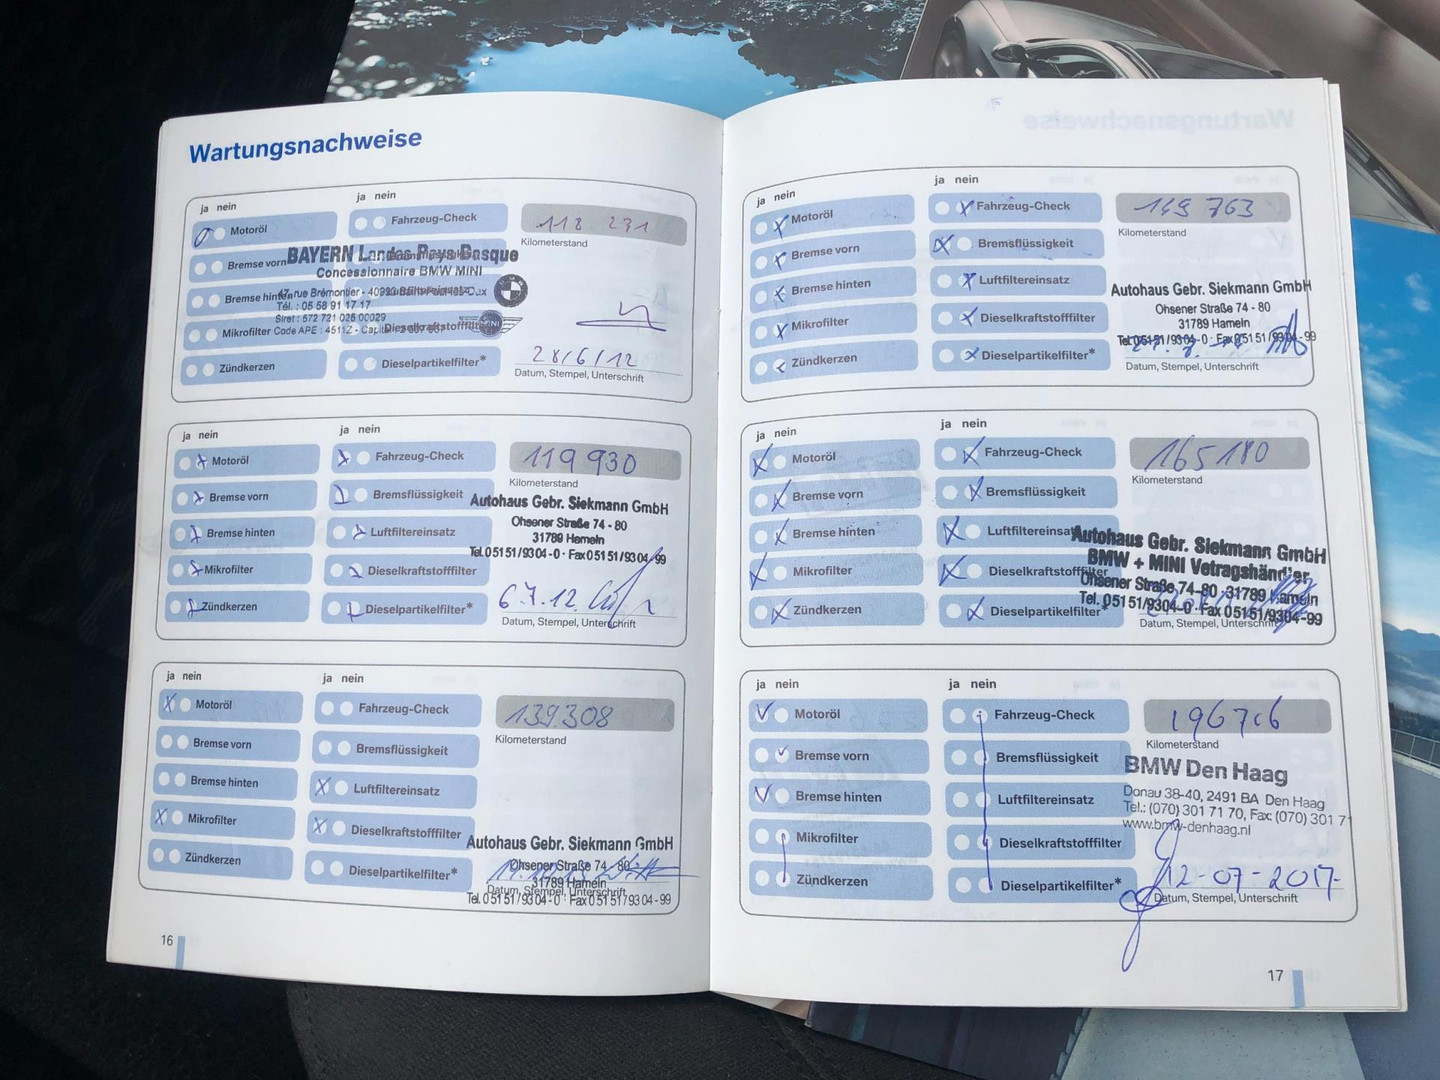 Wartungsnachweise
ja nein
ja nein
Motoröl
Fahrzeug-Check
118 231
Kilometerstand
Bremse vorn
BAYERN Landes Pays Basque
Concessionnaire BMW MINI
Bremse hinten
47, rue Brémontier - 40990
Tél. : 05 58 91 17 17
Siret : 572 721 025 00029
Mikrofilter
Code APE : 4511Z - Capital
Dieselkraftstofffilter
MINI
Zündkerzen
Dieselpartikelfilter*
28/6/12
Datum, Stempel, Unterschrift
ja nein
ja nein
Motoröl
Fahrzeug-Check
119 930
Kilometerstand
Bremse vorn
Bremsflüssigkeit
Autohaus Gebr. Siekmann GmbH
Ohsener Straße 74 - 80
31789 Hameln
Tel. 05151/9304-0 · Fax 05151/9304-99
Bremse hinten
Luftfiltereinsatz
Mikrofilter
Dieselkraftstofffilter
Zündkerzen
Dieselpartikelfilter*
6.7.12
Datum, Stempel, Unterschrift
ja nein
ja nein
Motoröl
Fahrzeug-Check
139308
Kilometerstand
Bremse vorn
Bremsflüssigkeit
Bremse hinten
Luftfiltereinsatz
Mikrofilter
Dieselkraftstofffilter
Autohaus Gebr. Siekmann GmbH
Ohsener Straße 74 - 80
31789 Hameln
Tel. 05151/9304-0 · Fax 05151/9304-99
Zündkerzen
Dieselpartikelfilter*
Datum, Stempel, Unterschrift
16
ja nein
ja nein
Motoröl
Fahrzeug-Check
149 763
Kilometerstand
Bremse vorn
Bremsflüssigkeit
Bremse hinten
Luftfiltereinsatz
Autohaus Gebr. Siekmann GmbH
Ohsener Straße 74 - 80
31789 Hameln
Tel. 05151/9304-0 · Fax 05151/9304-99
Mikrofilter
Dieselkraftstofffilter
Zündkerzen
Dieselpartikelfilter*
Datum, Stempel, Unterschrift
ja nein
ja nein
Motoröl
Fahrzeug-Check
165180
Kilometerstand
Bremse vorn
Bremsflüssigkeit
Bremse hinten
Luftfiltereinsatz
Autohaus Gebr. Siekmann GmbH
BMW + MINI Vetragshändler
Ohsener Straße 74-80 · 31789 Hameln
Tel. 05151/9304-0 · Fax 05151/9304-99
Mikrofilter
Dieselkraftstofffilter
Zündkerzen
Dieselpartikelfilter*
Datum, Stempel, Unterschrift
ja nein
ja nein
Motoröl
Fahrzeug-Check
196706
Kilometerstand
Bremse vorn
Bremsflüssigkeit
BMW Den Haag
Donau 38-40, 2491 BA Den Haag
Tel.: (070) 301 71 70, Fax: (070) 301 71
www.bmw-denhaag.nl
Bremse hinten
Luftfiltereinsatz
Mikrofilter
Dieselkraftstofffilter
Zündkerzen
Dieselpartikelfilter*
12-07-2017-
Datum, Stempel, Unterschrift
17